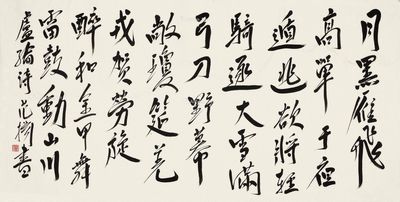 月黑雁飛
高單于夜
遁逃欲將輕
騎逐大雪滿
弓刀野幕
敞瓊筵羌
戎賀勞旋
醉和金甲舞
雷鼓動山川
盧綸詩 范書